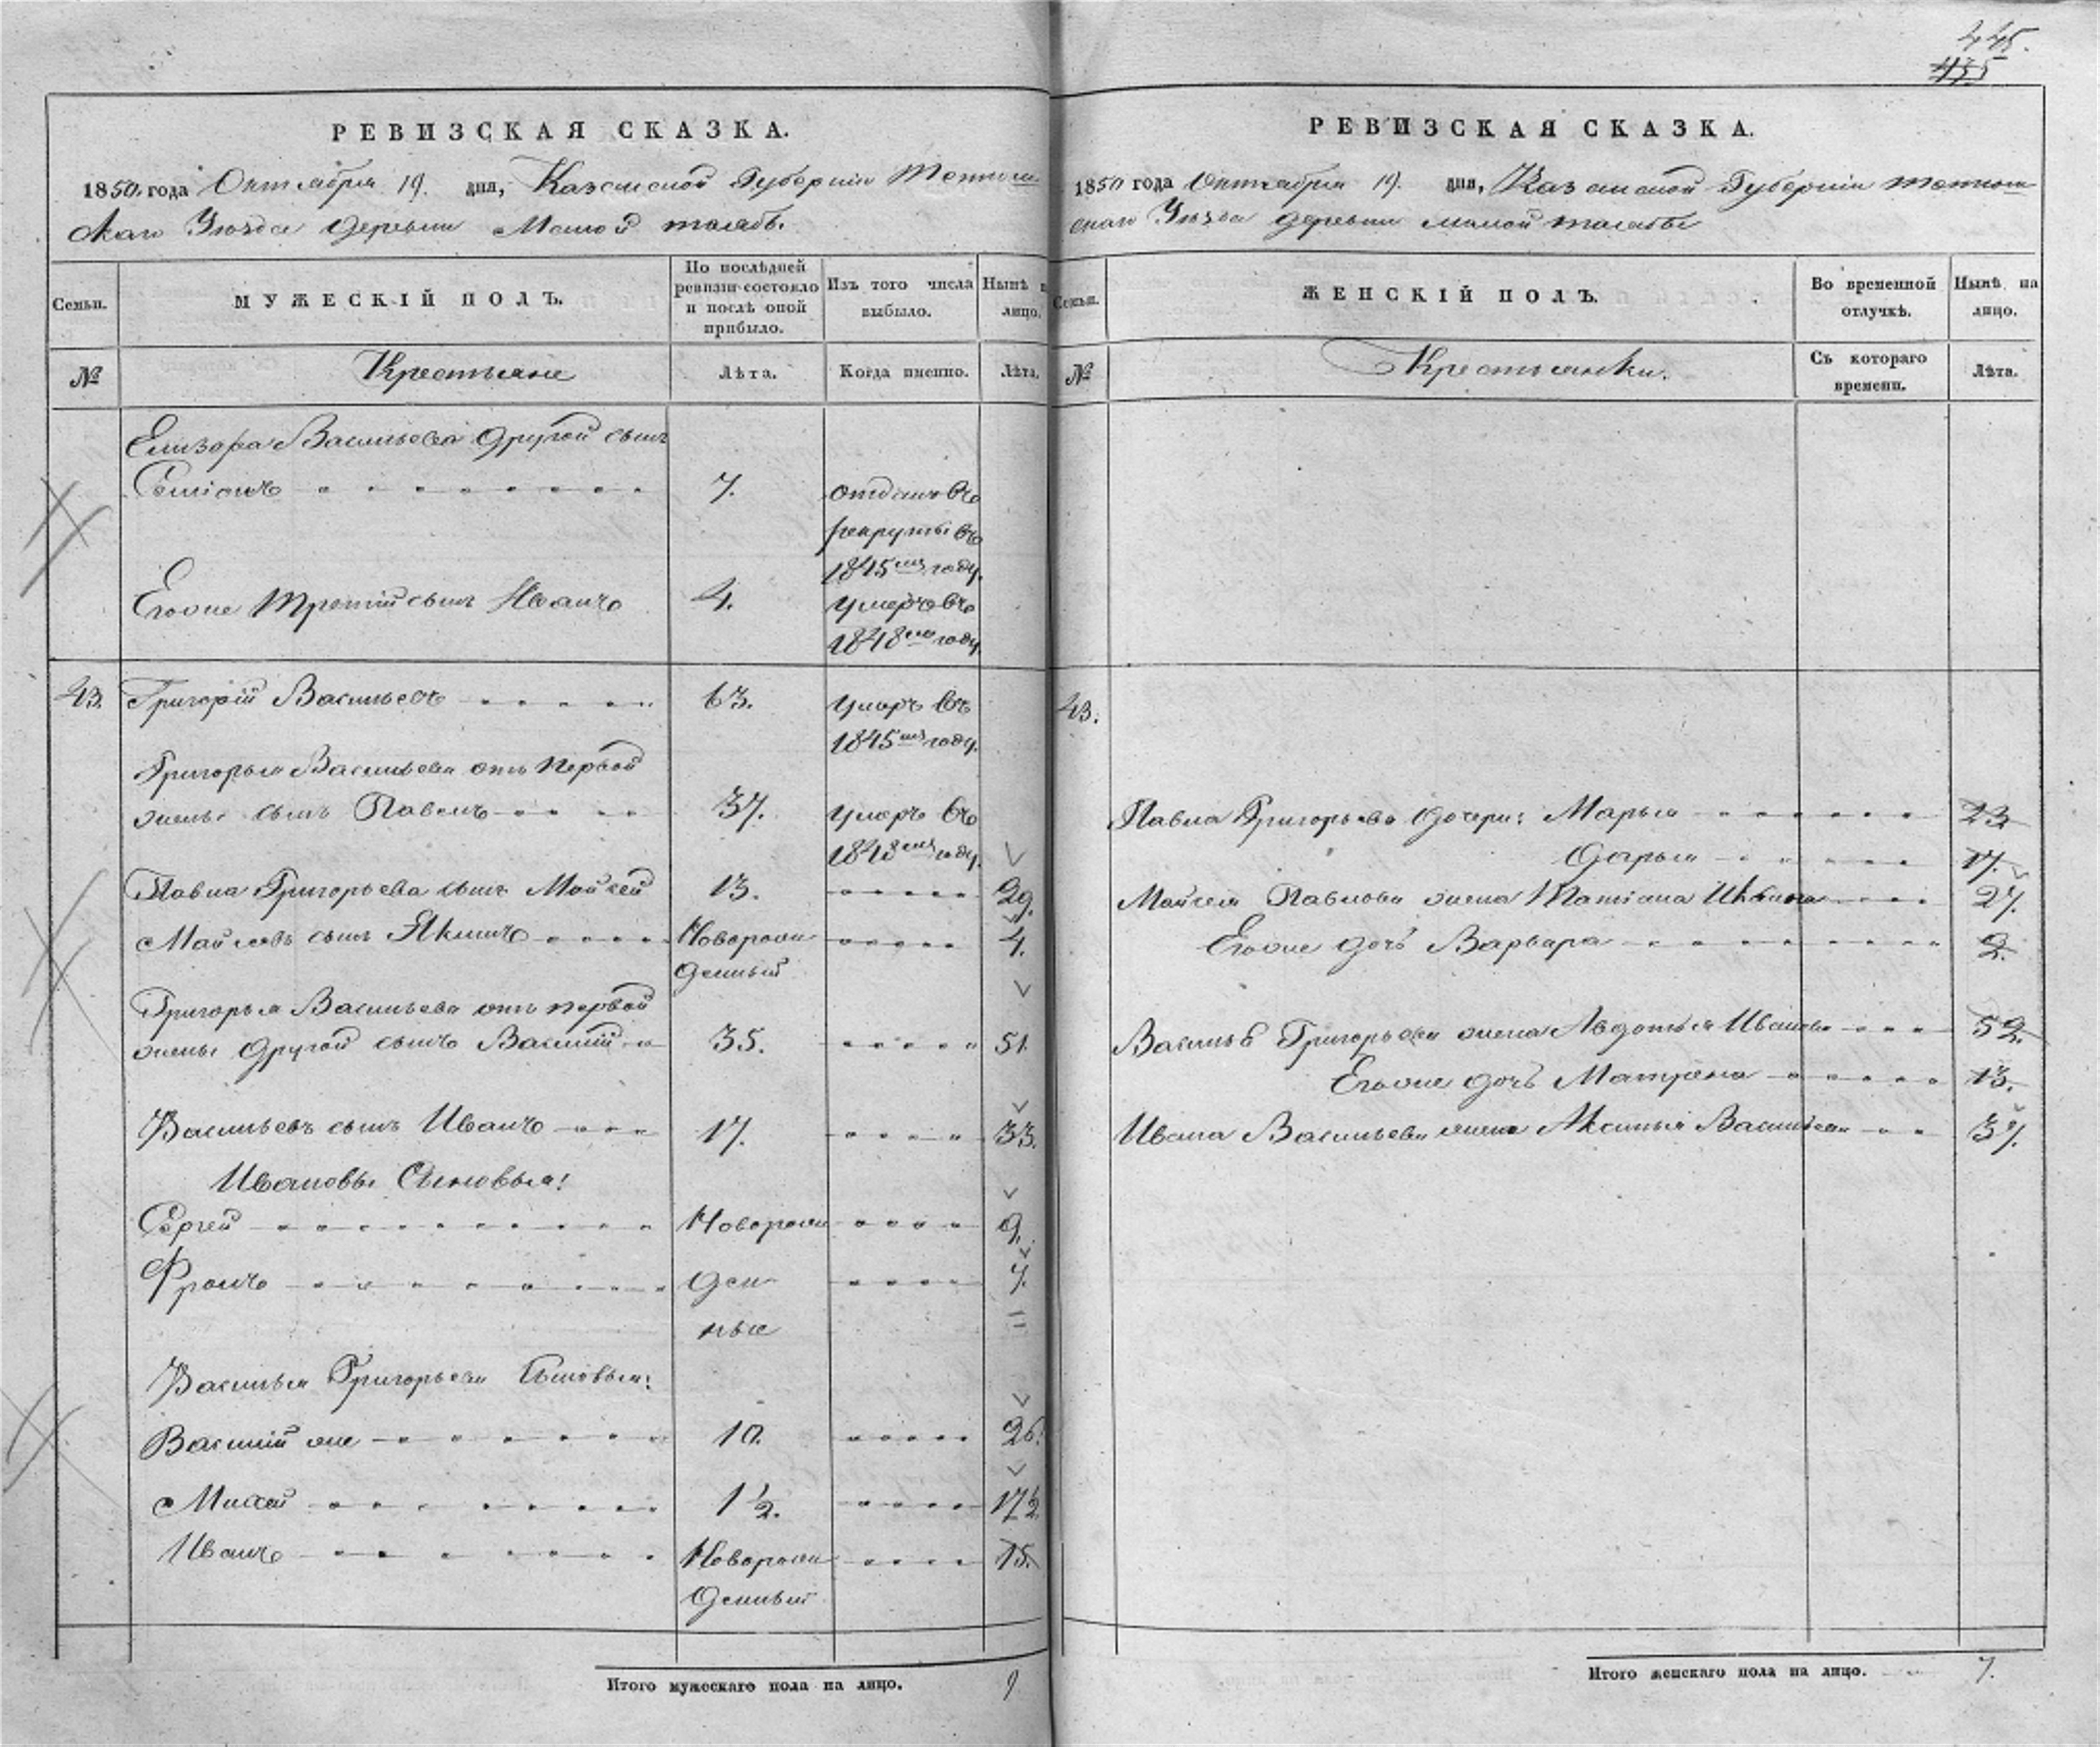 445.
435
РЕВИЗСКАЯ СКАЗКА.
1850 года Октября 19. дня, Казанской Губерніи Тетюш
скаго Уѣзда деревни Малой
Семьи.
МУЖЕСКІЙ ПОЛЪ.
По послѣдней ревизіи состояло и послѣ оной прибыло.
Изъ того числа выбыло.
Нынѣ н лицо.
№
Крестьяне
Лѣта.
Когда именно.
Лѣта.
Елизара Васильева другой сынъ
Семіонъ 7. отданъ въ
рекруты въ
1845мъ году.
Егоже третій сынъ Иванъ 4. умеръ въ
1848мъ году.
43. Григорій Васильевъ 63. умеръ въ
1845мъ году.
Григорья Васильева отъ первой
жены сынъ Павелъ 37. умеръ въ
1848мъ году.
Павла Григорьева сынъ Мойсей 13. 29.
Мойсеевъ сынъ Якимъ Новорож 4.
денный
Григорья Васильева отъ первой
жены другой сынъ Василій 35. 51.
Васильевъ сынъ Иванъ 17. 33.
Ивановы Сыновья:
Сергей Новорож 9.
Фролъ ден 7.
ные
Василья Григорьева Сыновья:
Василій же 10. 26.
Михай 1 1/2. 17 1/2.
Иванъ Новорож 15.
денный
Итого мужескаго пола на лицо. 9
РЕВИЗСКАЯ СКАЗКА.
1850 года Октября 19. дня, Казанской Губерніи Тетюш
скаго Уѣзда деревни малой
Семьи.
ЖЕНСКІЙ ПОЛЪ.
Во временной отлучкѣ.
Нынѣ на лицо.
№
Крестьянки.
Съ котораго времени.
Лѣта.
43.
Павла Григорьева дочери: Марья 23
Дарья 17.
Мойсея Павлова жена Татіана 27.
Егоже дочь Варвара 2.
Василья Григорьева жена Авдотья Иванова 52.
Егоже дочь Матрена 13.
Ивана Васильева жена Аксинья Васильева 37.
Итого женскаго пола на лицо. 7.